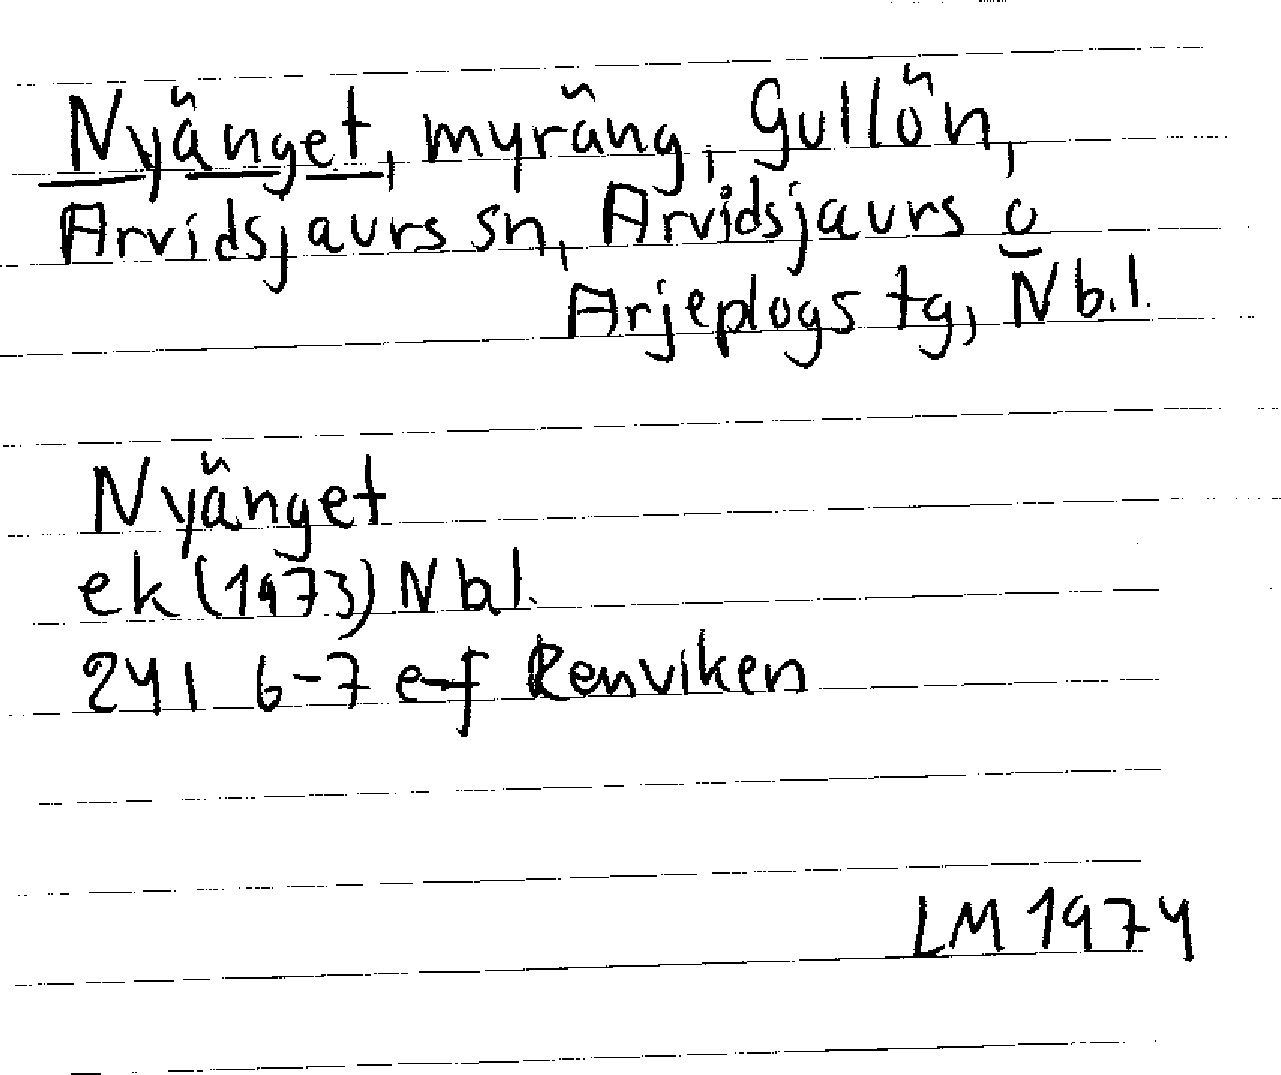 Nyänget, myräng, Gullön,
Arvidsjaurs sn, Arvidsjaurs o
Arjeplogs tg, Nb.l.
Nyänget
ek (1973) Nbl.
24I 6-7 e-f Renviken
LM 1974